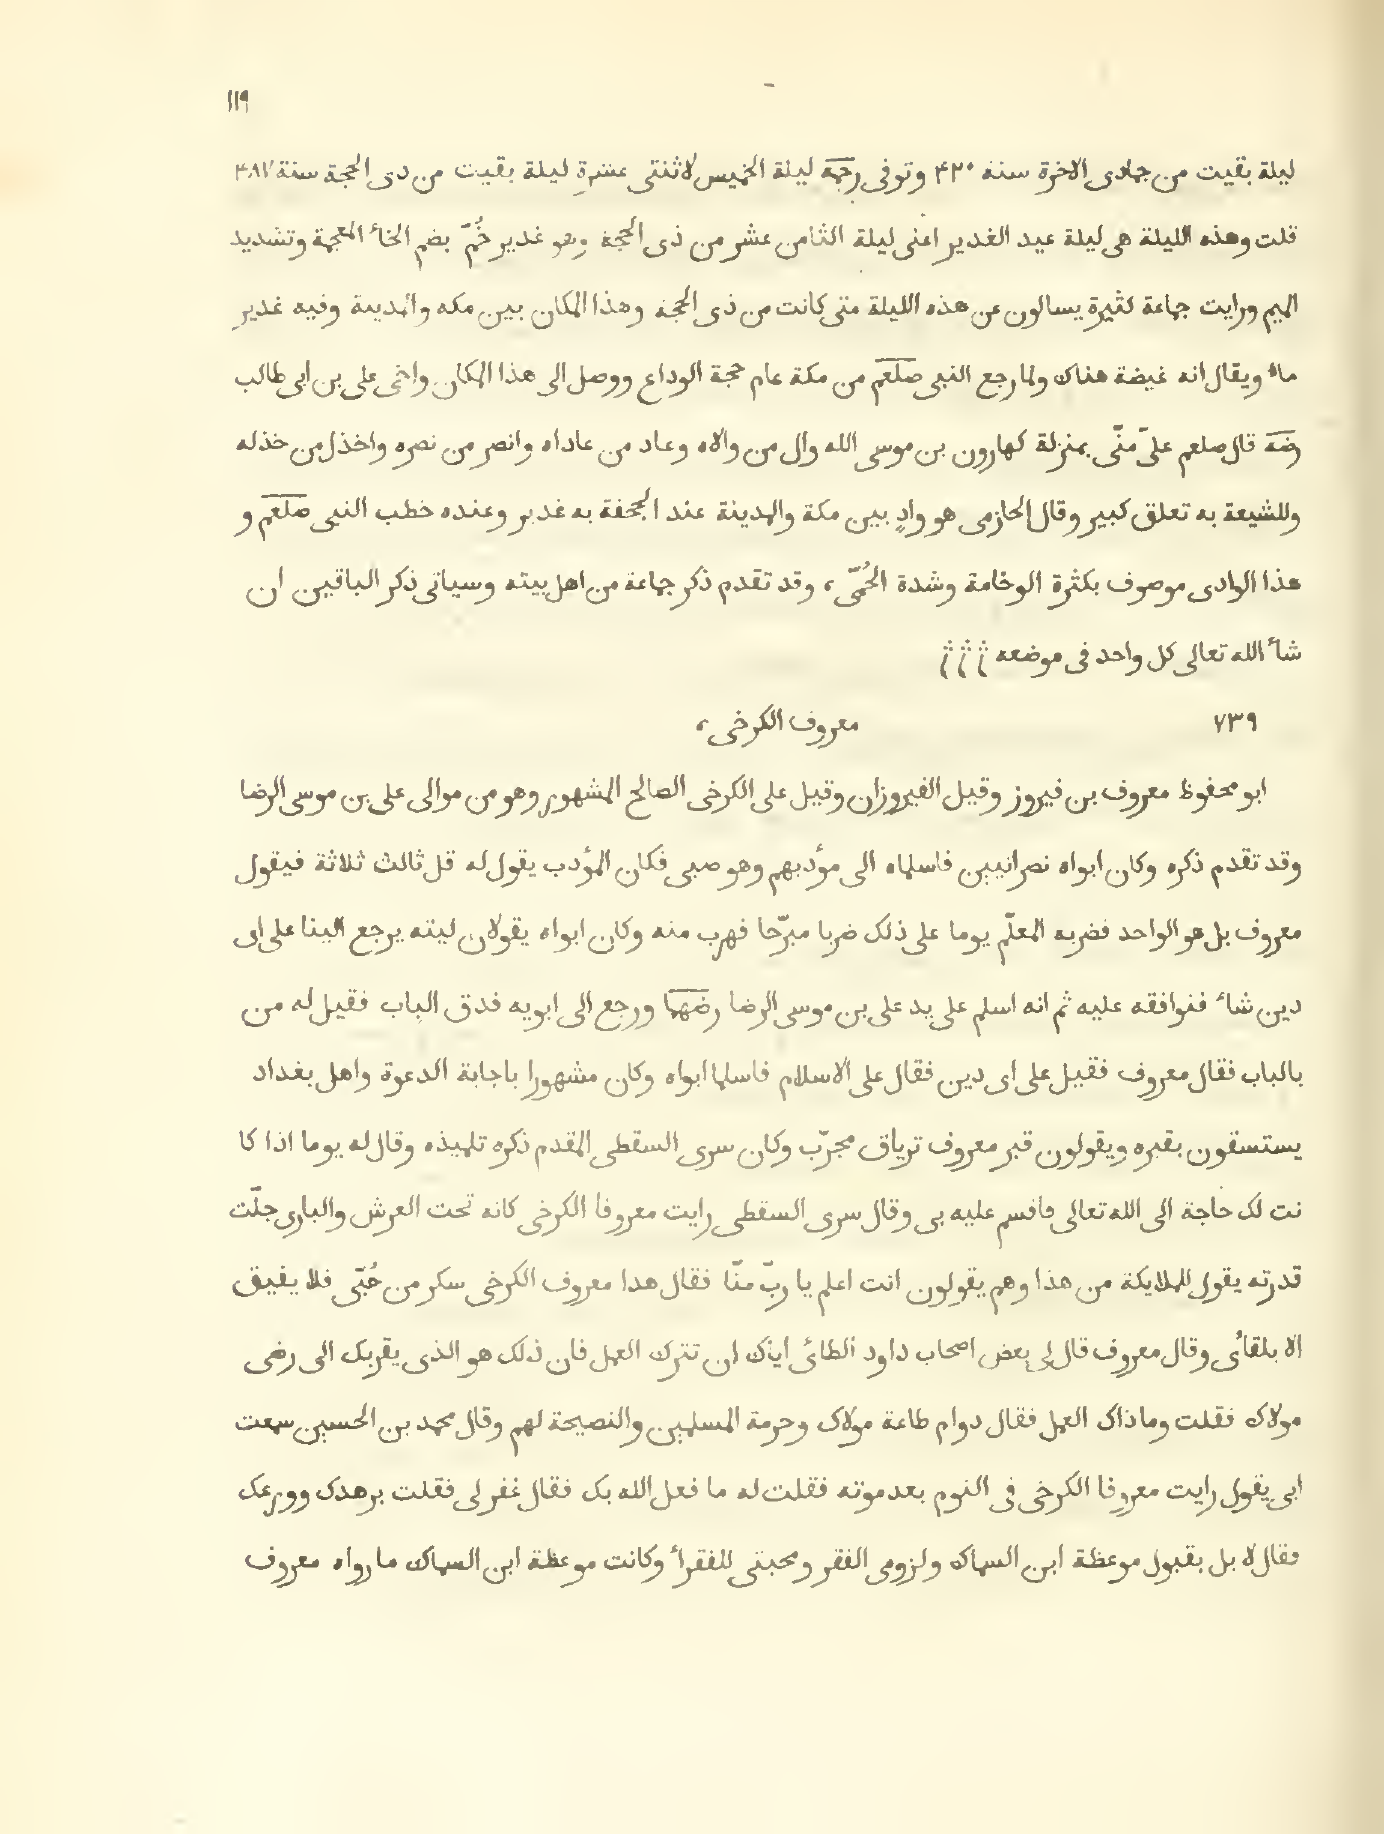 ١١٩
ليلة بقيت من جمادى الاخرة سنة ۴٢٠ وتوفى رحمه ليلة الخميس لاثنتى عشرة ليلة بقيت من دى الحجة سنة ۴٨٧
قلت وهذه الليلة هى ليلة عيد الغدير اعنى ليلة الثامن عشر من ذى الحجة وهو غدير خُمّ بضم الخاء المعجمة وتشديد
الميم ورايت جماعة كثيرة يسالون عن هذه الليلة متى كانت من ذى الحجة وهذا المكان بين مكه والمدينة وفيه غدير
ماء ويقال انه غيضة هناك ولما رجع النبى صلعم من مكة عام حجة الوداع ووصل الى هذا المكان واخى على بن ابى طالب
رضه قال صلعم علىّ منّى بمنزلة كهارون بن موسى الله وال من والاه وعاد من عاداه وانصر من نصره واخذل من خذله
وللشيعة به تعلق كبير وقال الحازمى هو وادٍ بين مكة والمدينة عند الجحفة به غدير وعنده خطب النبى صلعم و
هذا الوادى موصوف بكثرة الوخامة وشدة الحُمّى، وقد تقدم ذكر جماعة من اهل بيته وسياتى ذكر الباقين ان
شاء الله تعالى كل واحد فى موضعه
٧٣٩ معروف الكرخى،
ابو محفوظ معروف بن فيروز وقيل الفيروزان وقيل على الكرخى الصالح المشهور وهو من موالى على بن موسى الرضا
وقد تقدم ذكره وكان ابواه نصرانيين فاسلماه الى مؤدبهم وهو صبى فكان المؤدب يقول له قل ثالث ثلاثة فيقول
معروف بل هو الواحد فضربه المعلّم يوما على ذلك ضربا مبرّحا فهرب منه وكان ابواه يقولان ليته يرجع الينا على اى
دين شاء فنوافقه عليه ثم انه اسلم على يد على بن موسى الرضا رضهما ورجع الى ابويه فدق الباب فقيل له من
بالباب فقال معروف فقيل على اى دين فقال على الاسلام فاسلما ابواه وكان مشهورا باجابة الدعوة واهل بغداد
يستسقون بقبره ويقولون قبر معروف ترياق مجرّب وكان سرى السقطى المقدم ذكره تلميذه وقال له يوما اذا كا
نت لك حاجة الى الله تعالى فاقسم عليه بى وقال سرى السقطى رايت معروفا الكرخى كانه تحت العرش والبارى جلّت
قدرته يقول للملايكة من هذا وهم يقولون انت اعلم يا ربّ منّا فقال هدا معروف الكرخى سكر من حُبّى فلا يفيق
الا بلقائى وقال معروف قال لى بعض اصحاب داود الطائى اياك ان تترك العمل فان ذلك هو الذى يقربك الى رضى
مولاك فقلت وما ذاك العمل فقال دوام طاعة مولاك وحرمة المسلمين والنصيحة لهم وقال محمد بن الحسين سمعت
ابى يقول رايت معروفا الكرخى فى النوم بعد موته فقلت له ما فعل الله بك فقال غفر لى فقلت بزهدك وورعك
فقال لا بل بقبول موعظة ابن السماك ولزومى الفقر ومحبتى للفقراء وكانت موعظة ابن السماك ما رواه معروف